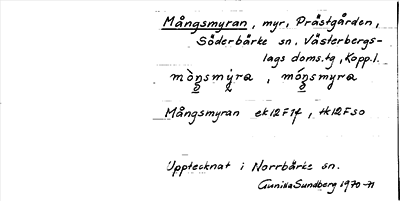 Mångsmyran, myr, Prästgården,
Söderbärke sn. Västerbergs-
lags doms.tg, Kopp.l.
mòn̥smy̆ra, món̥smyra
Mångsmyran ek12F1f, tk12FSO
Upptecknat i Norrbärke sn.
Gunilla Sundberg 1970-71